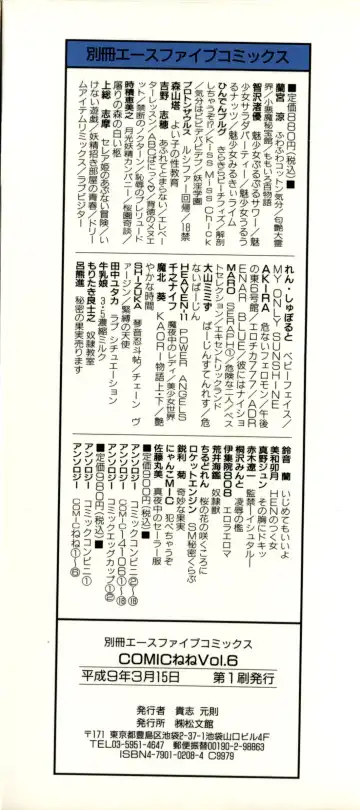 別冊エースファイブコミックス
■定価880円(税込)■
蘭宮 涼 ふわふわコットン気分／匂艶大霊
界／小悪魔秘宝館／ももいろ百物語
智沢渚優 魅少女ぷるぷるサワー／魅
少女サラダパーティー／魅少女うるう
るナッツ／魅少女みるきぃライム
ひんでんブルグ きらきらピーチフィズ／解剖
しちゃうぞ!?／Kiss Miss Chick
／気分はビビデバビデブー／妖淫学園
プロトンザウルス ルシファー回帰／18禁
森山塔 よい子の性教育
吉野 志穂 あふれてとまらない／エレベー
ターレッスン／ABCぽっく♡／背徳のメヌエ
ット／禁断のラプソディー／恥辱のプレリュード
時積恵美之 月光妖精カンパニー／桜園奇談／
屠りの森の白い柩
上総 志摩 セレア姫のあぶない冒険／い
けない遊戯／妖精招き部屋の青春／トリー
ムアイテムリミックス／ラブビジター
れん・しゅぽると ベビーフェイス／
MY ONLY SUNSHINE
AKIRA 危ないリフェロモン／午後
の東6号館／エロチカ777／ADR
ENAR BLUE／彼にはナイショ
MARO SERAPH①／危険な二人／ベス
トセレクション／エキセントリックランド
大山ミミず ばーじんすてんれす／危
ないばーじん
HEAVEN-11 POWER ANGELS
千之ナイフ 魔夜中のレディ／美少女世界
魔北 葵 KAORI物語上・下／艶
やかな時間
SHIZUKA 琴音忍斗帖／チェーン ヴ
ァージン／緊縛の天使
田中ユタカ ラブ シチュエーション
牛乳娘 3・5濃縮ミルク
もりたき良土之 奴隷教室
呂熊進 秘密の果実売ります
鈴音 蘭 いじめてもいいよ
美和卯月 HENのつく女
真野ジュン その胸にドキッ
赤木遼一 監禁イシュタルー
桐沢みんと 凌辱の檻
伊集院808 エロラエロマ
荒井海鑑 奴隷獣
ちるどれん 桜の花の咲くころに
ロケットエンジン SM秘密くらぶ
鋭利 菊 奇妙な果実
にゃんこMIC 犯べちゃうぞ
佐藤丸美 真夜中のセーラー服
■定価900円(税込)■
アンソロジー コミックコンビニ②〜⑱
アンソロジー COMIC1410611〜⑱
アンソロジー コミックエッグカップ①②
■定価980円(税込)■
アンソロジー コミックコンビニ①
アンソロジー COMICねね①〜⑥
別冊エースファイブコミックス
COMICねねVol.6
平成9年3月15日 第1刷発行
発行者 貴志 元則
発行所 ㈱松文館
〒171 東京都豊島区池袋2-37-1池袋山口ビル4F
TEL03-5951-4647 郵便振替00190-2-98863
ISBN4-7901-0208-4 C9979